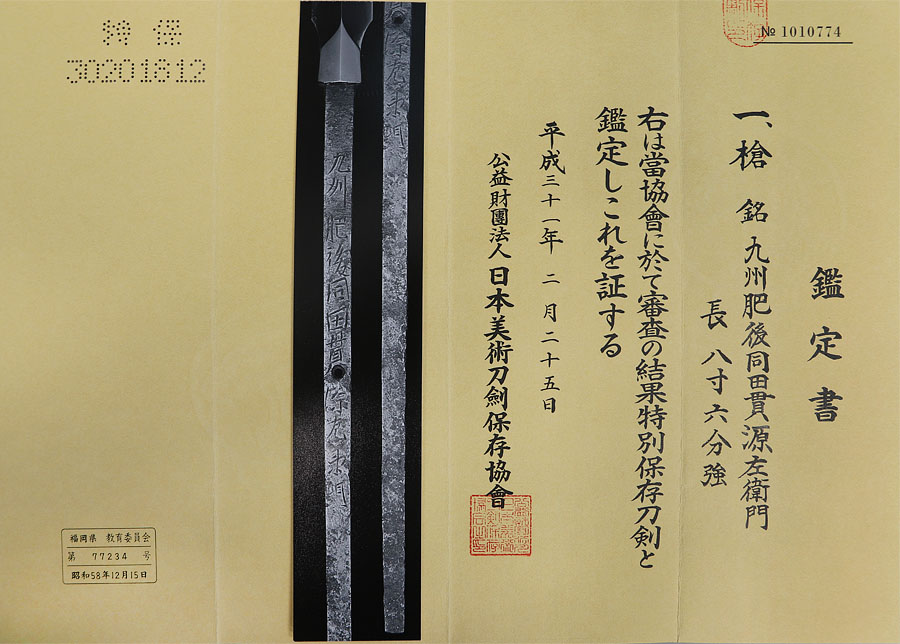 № 1010774
鑑定書
一、槍 銘 九州肥後同田貫源左衛門
長 八寸六分強
右は當協會に於て審査の結果特別保存刀剣と
鑑定しこれを証する
平成三十一年 二月二十五日
公益財團法人 日本美術刀劍保存協會
九州肥後同田貫
特保
30201812
福岡県 教育委員会
第 77234 号
昭和58年12月15日